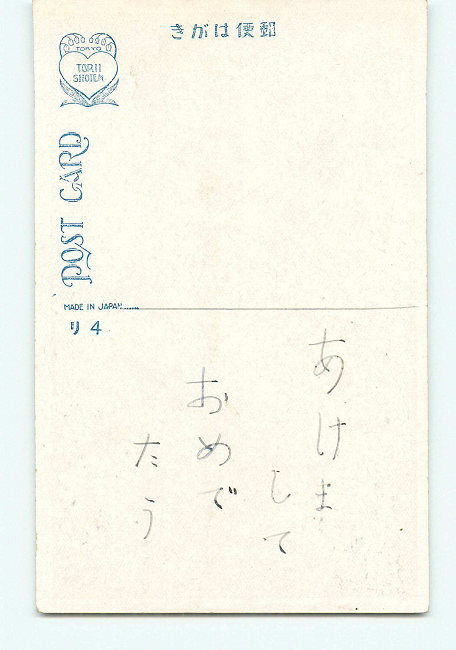 きがは便郵
TOKYO
TORII
SHOTEN
POST CARD
MADE IN JAPAN
リ 4
あけま
して
おめで
たう